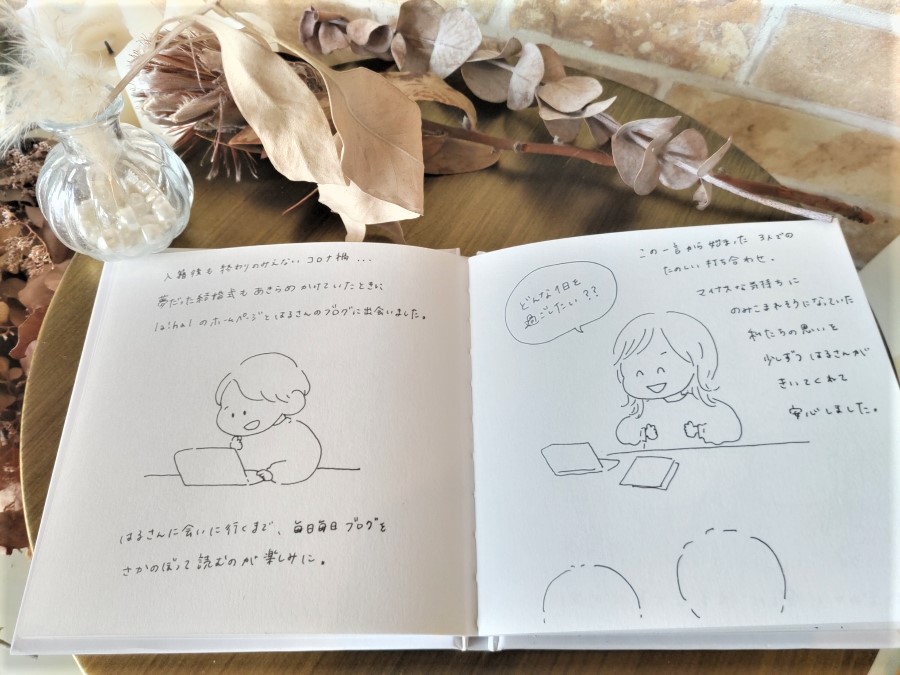 入籍後も終わりのみえない コロナ禍...
夢だった結婚式も あきらめ かけていたときに
laihalのホームページと はるさんのブログに出会いました。
はるさんに会いに行くまで、毎日毎日 ブログを
さかのぼって 読むのが 楽しみに。
この一言から 始まった 3人での
たのしい 打ち合わせ。
どんな1日を
過ごしたい??
マイナスな気持ちに
のみこまれそうになっていた
私たちの思いを
少しずつ はるさんが
きいてくれて
安心しました。